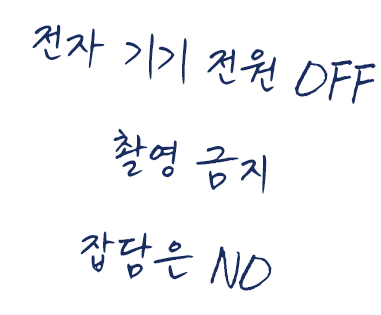 전자 기기 전원 OFF
촬영 금지
잡담은 NO